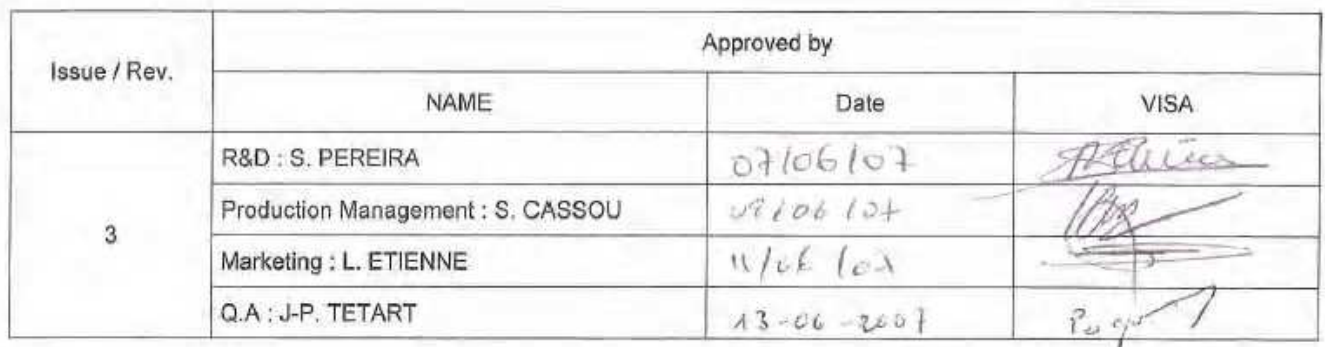 Issue / Rev.
Approved by
NAME
Date
VISA
3
R&D : S. PEREIRA
07/06/07
Production Management : S. CASSOU
/06/07
Marketing : L. ETIENNE
11/06/07
Q.A : J-P. TETART
13-06-2007